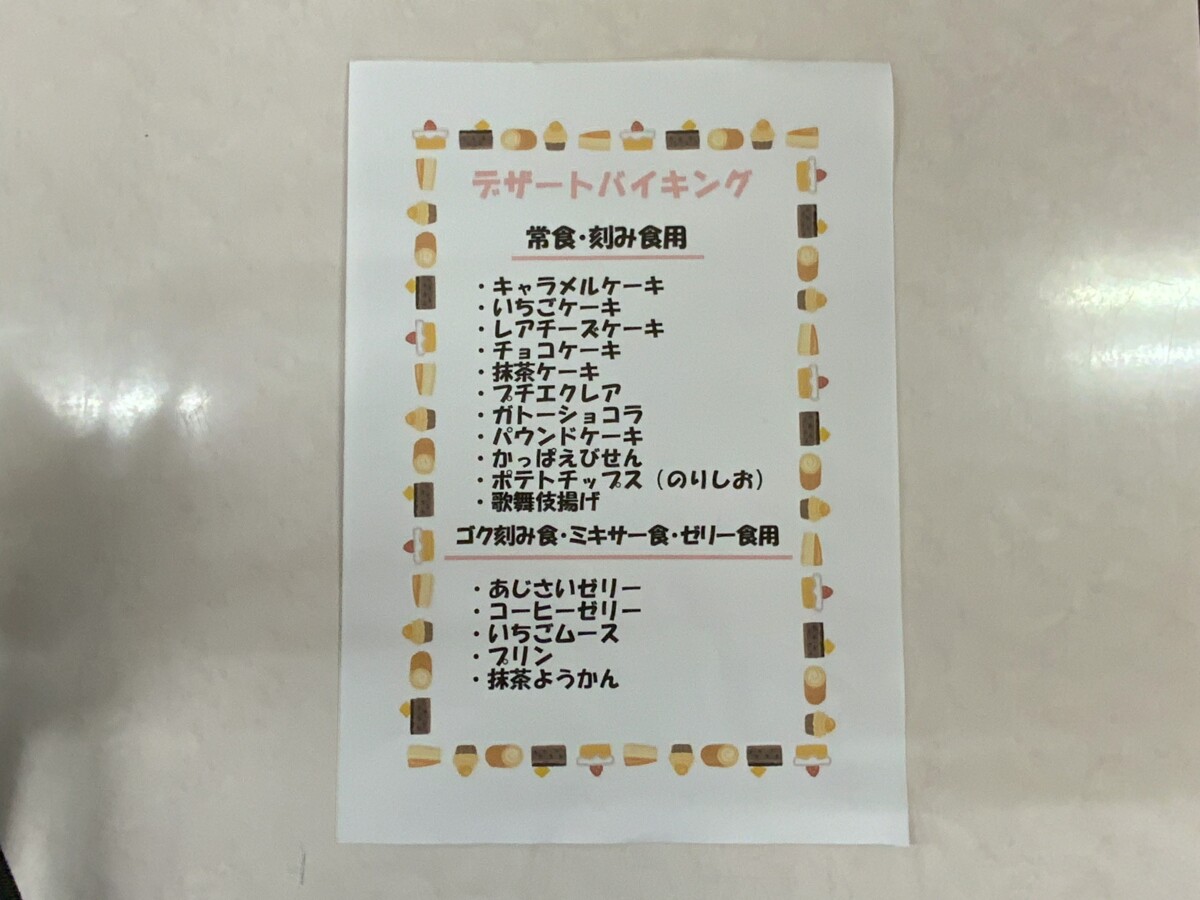 デザートバイキング
常食・刻み食用
・キャラメルケーキ
・いちごケーキ
・レアチーズケーキ
・チョコケーキ
・抹茶ケーキ
・プチエクレア
・ガトーショコラ
・パウンドケーキ
・かっぱえびせん
・ポテトチップス（のりしお）
・歌舞伎揚げ
ゴク刻み食・ミキサー食・ゼリー食用
・あじさいゼリー
・コーヒーゼリー
・いちごムース
・プリン
・抹茶ようかん